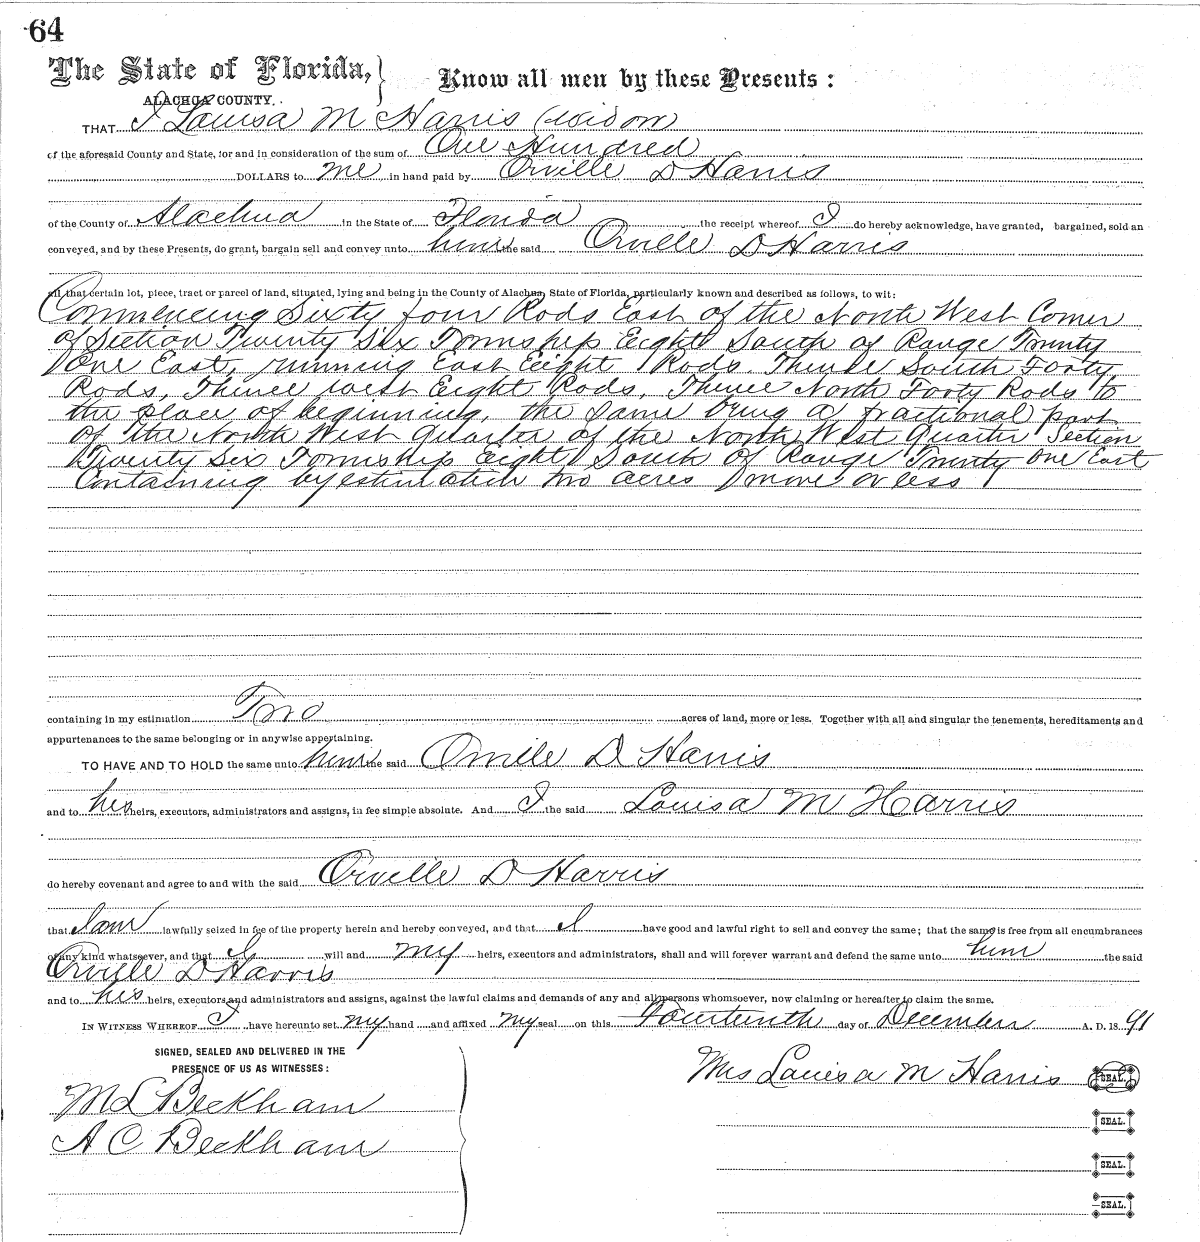 64
The State of Florida,
Know all men by these Presents :
ALACHUA COUNTY.
THAT I Louisa M Harris (widow)
of the aforesaid County and State, for and in consideration of the sum of One Hundred
DOLLARS to me in hand paid by Orville D Harris
of the County of Alachua in the State of Florida the receipt whereof I do hereby acknowledge, have granted, bargained, sold an
conveyed, and by these Presents, do grant, bargain sell and convey unto him the said Orville D Harris
all that certain lot, piece, tract or parcel of land, situated, lying and being in the County of Alachua, State of Florida, particularly known and described as follows, to wit:
Commencing Sixty four Rods East of the North West Corner
of Section Twenty Six Township Eight South of Range Twenty
One East, running East Eight Rods. Thence South Forty
Rods, Thence West Eight Rods, Thence North Forty Rods to
the place of beginning, the same being a fractional part
of the North West quarter of the North West Quarter Section
Twenty Six Township Eight South of Range Twenty One East
Containing by estimation two acres more or less
containing in my estimation Two acres of land, more or less. Together with all and singular the tenements, hereditaments and
appurtenances to the same belonging or in anywise appertaining.
TO HAVE AND TO HOLD the same unto him the said Orville D Harris
and to his heirs, executors, administrators and assigns, in fee simple absolute. And I the said Louisa M Harris
do hereby covenant and agree to and with the said Orville D Harris
that I am lawfully seized in fee of the property herein and hereby conveyed, and that I have good and lawful right to sell and convey the same; that the same is free from all encumbrances
of any kind whatsoever, and that I will and my heirs, executors and administrators, shall and will forever warrant and defend the same unto him the said
Orville D Harris
and to his heirs, executors and administrators and assigns, against the lawful claims and demands of any and all persons whomsoever, now claiming or hereafter to claim the same.
IN WITNESS WHEREOF I have hereunto set my hand and affixed my seal on this Fourteenth day of December A. D. 1891
SIGNED, SEALED AND DELIVERED IN THE
PRESENCE OF US AS WITNESSES :
Mrs Louisa M Harris SEAL.
M L Beckham
SEAL.
A C Beckham
SEAL.
SEAL.